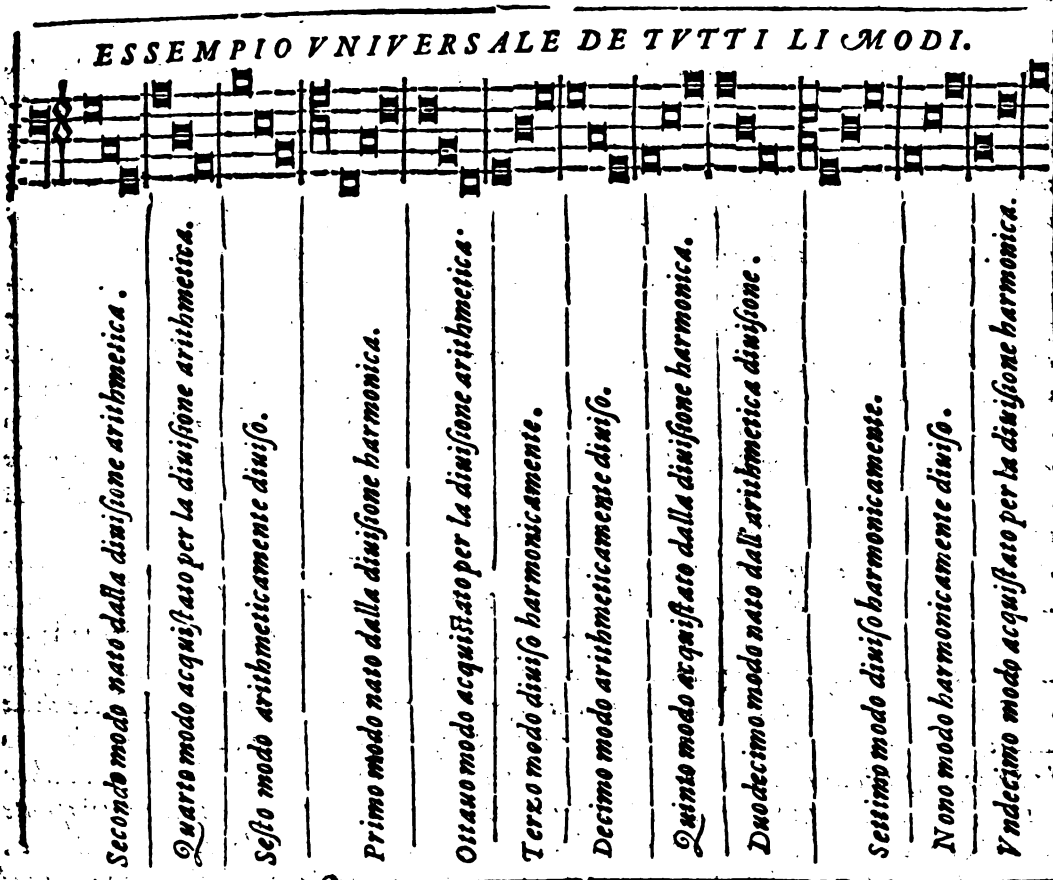 ESSEMPIO VNIVERSALE DE TVTTI LI MODI.
Secondo modo nato dalla diuiſione arithmetica.
Quarto modo acquiſtato per la diuiſione arithmetica.
Seſto modo arithmeticamente diuiſo.
Primo modo nato dalla diuiſione harmonica.
Ottauo modo acquiſtato per la diuiſione arithmetica.
Terzo modo diuiſo harmonicamente.
Decimo modo arithmeticamente diuiſo.
Quinto modo acquiſtato dalla diuiſione harmonica.
Duodecimo modo nato dall'arithmetica diuiſione.
Settimo modo diuiſo harmonicamente.
Nono modo harmonicamente diuiſo.
Vndecimo modo acquiſtato per la diuiſione harmonica.